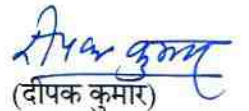 दीपक कुमार
(दीपक कुमार)